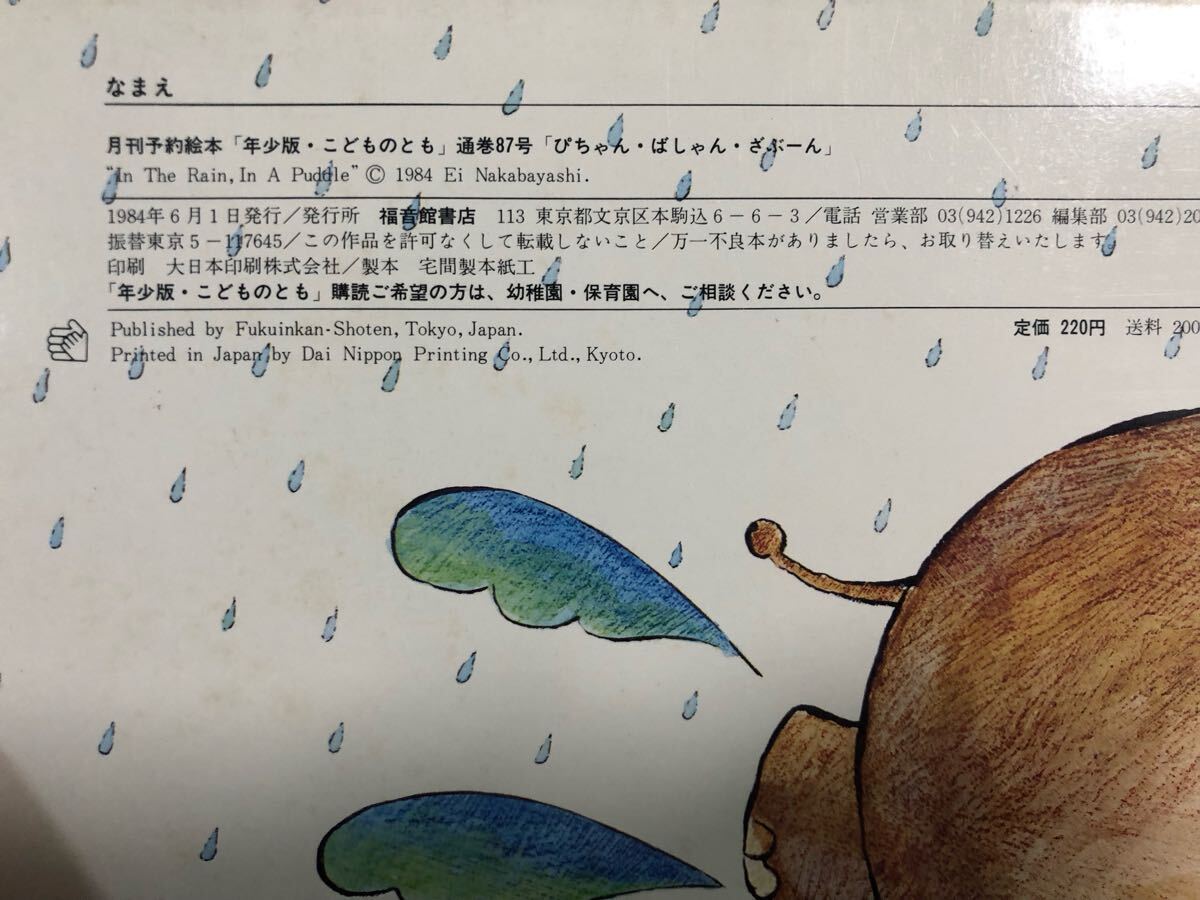 なまえ
月刊予約絵本「年少版・こどものとも」通巻87号「ぴちゃん・ばしゃん・ざぶーん」
"In The Rain, In A Puddle" © 1984 Ei Nakabayashi.
1984年6月1日発行／発行所 福音館書店 113 東京都文京区本駒込6－6－3／電話 営業部 03(942)1226 編集部 03(942)20
振替東京5－117645／この作品を許可なくして転載しないこと／万一不良本がありましたら、お取り替えいたします。
印刷 大日本印刷株式会社／製本 宅間製本紙工
「年少版・こどものとも」購読ご希望の方は、幼稚園・保育園へ、ご相談ください。
Published by Fukuinkan-Shoten, Tokyo, Japan.
定価 220円 送料 200
Printed in Japan by Dai Nippon Printing Co., Ltd., Kyoto.